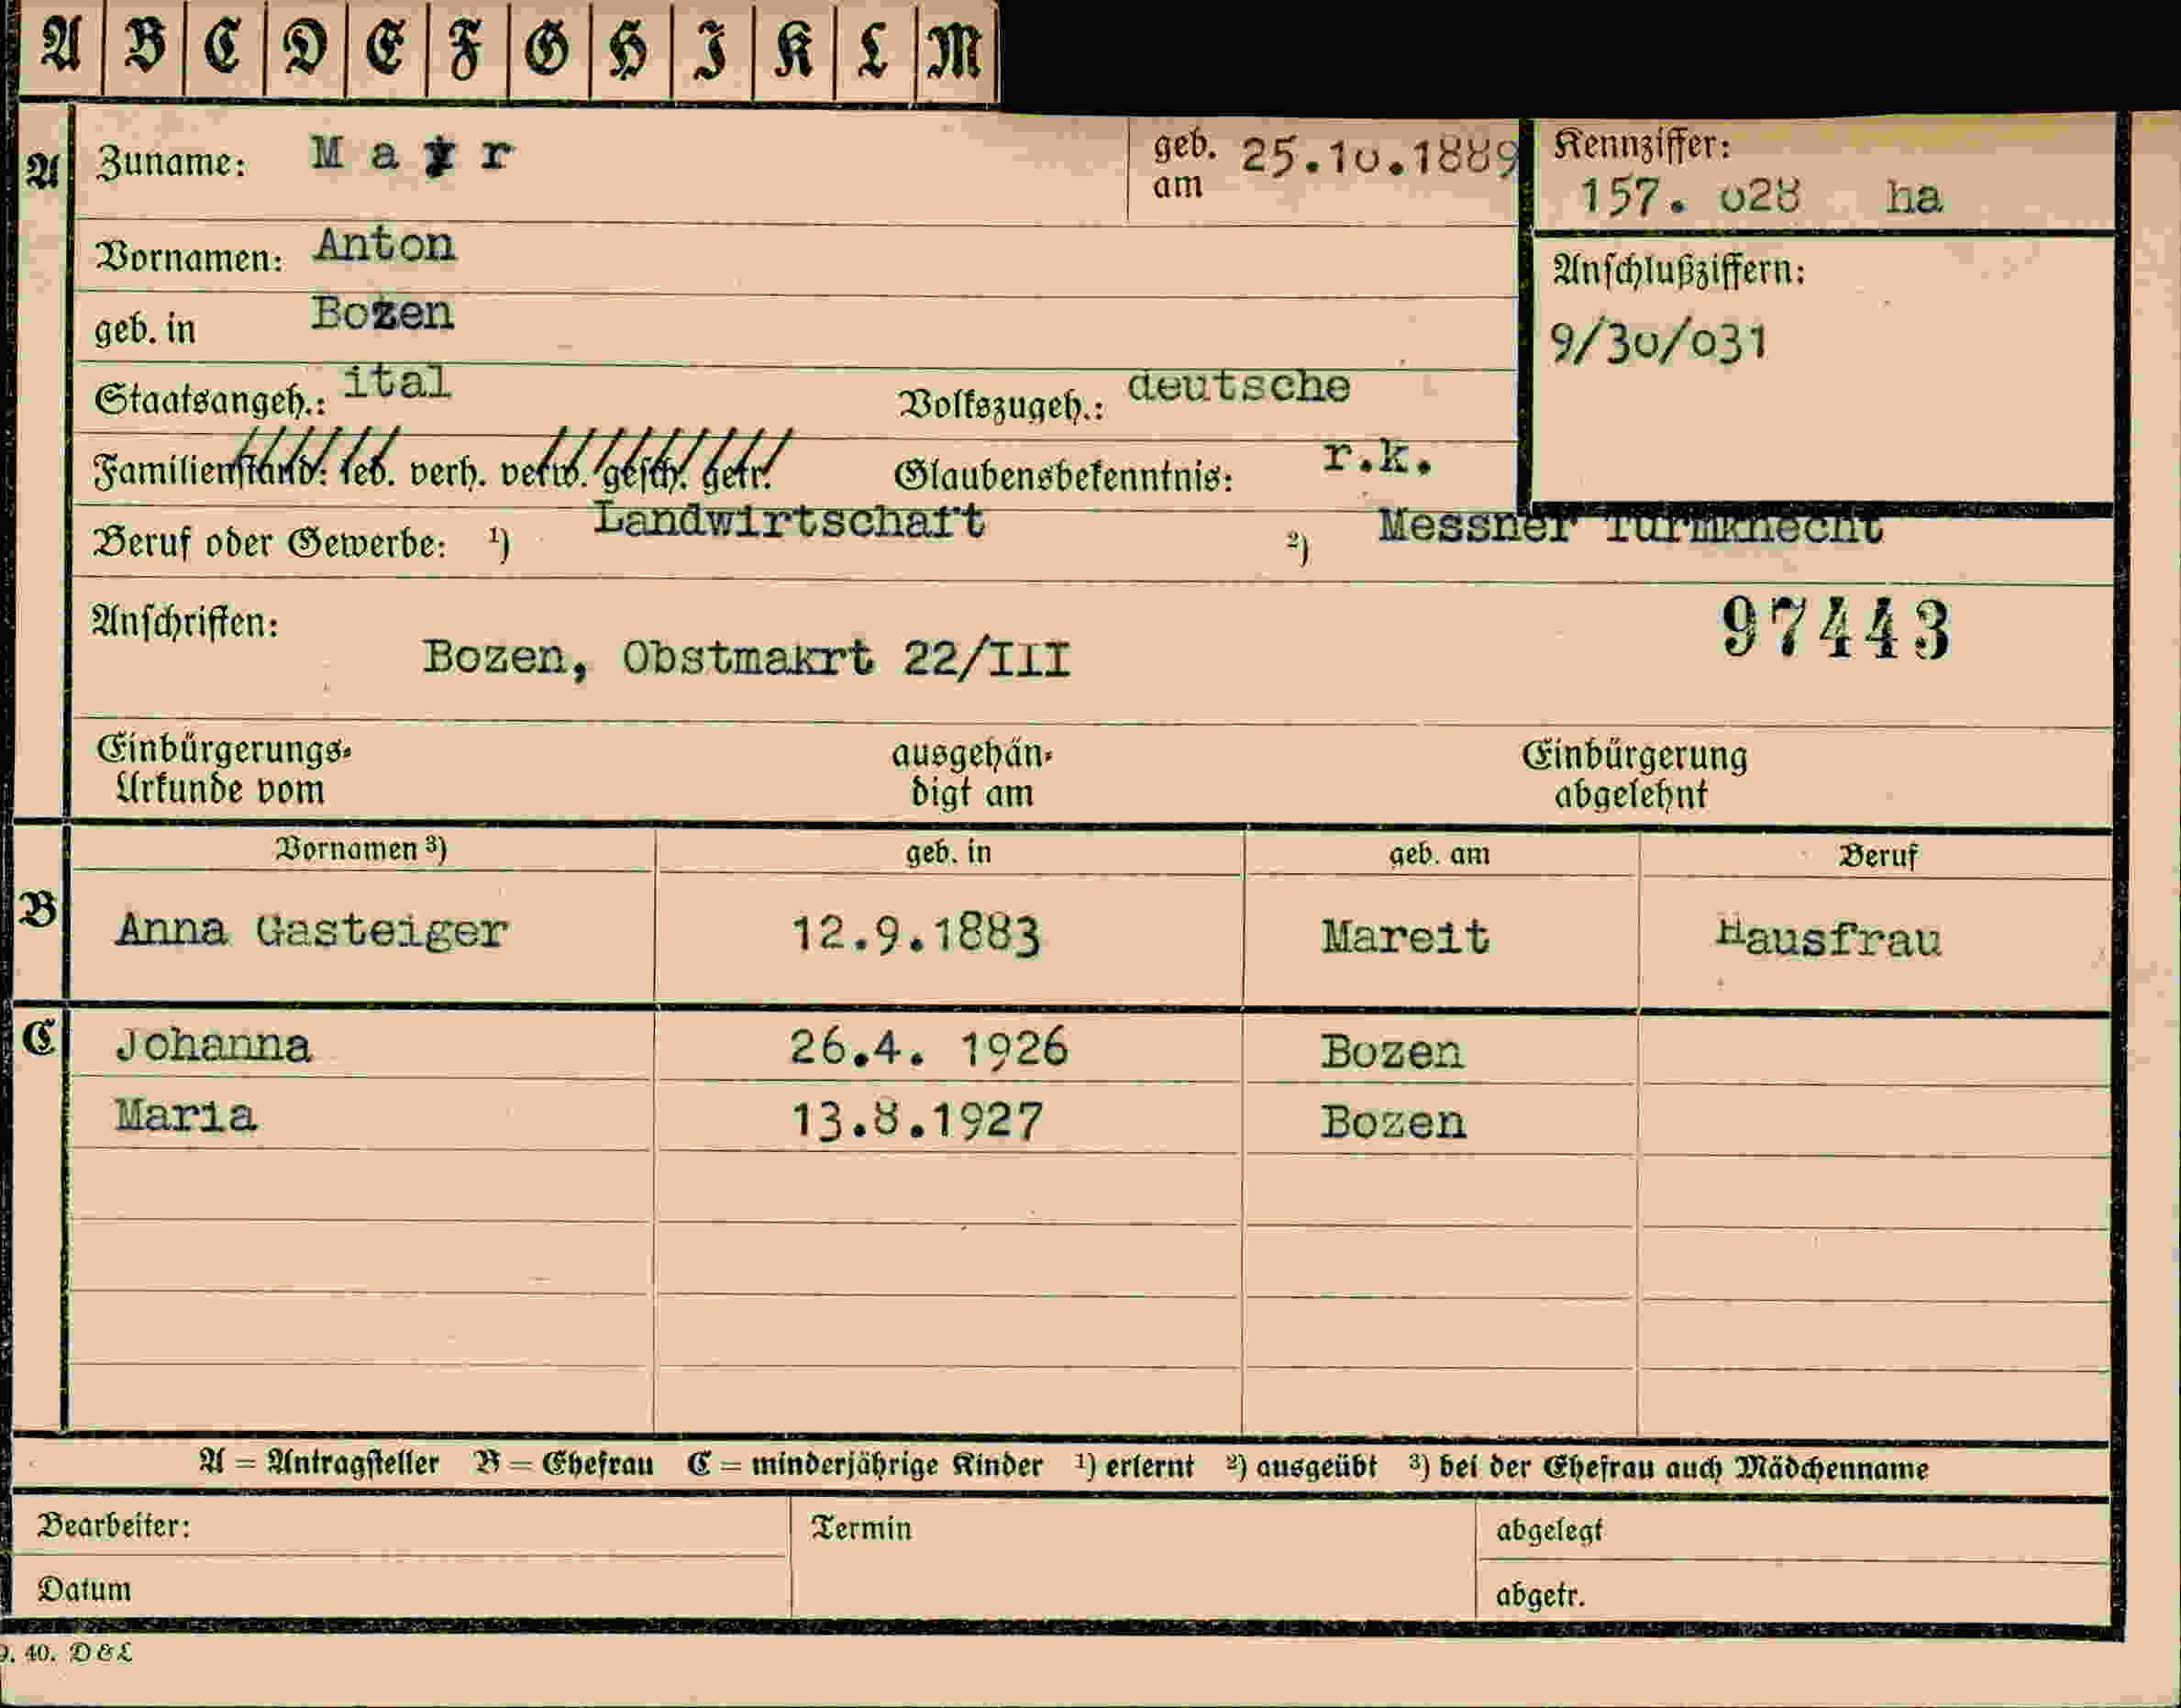 A B C D E F G H I K L M
A Zuname: Mayr geb. am 25.10.1889 Kennziffer: 157. 028 ha
Vornamen: Anton
Anschlußziffern:
geb. in Bozen
9/30/031
Staatsangeh.: ital Volkszugeh.: deutsche
Familienstand: led. verh. verw. gesch. getr. Glaubensbekenntnis: r.k.
Beruf oder Gewerbe: 1) Landwirtschaft 2) Messner Turmknecht
Anschriften: 97443
Bozen, Obstmakrt 22/III
Einbürgerungs- ausgehän- Einbürgerung
Urkunde vom digt am abgelehnt
Vornamen 3) geb. in geb. am Beruf
B Anna Gasteiger 12.9.1883 Mareit Hausfrau
C Johanna 26.4. 1926 Bozen
Maria 13.8.1927 Bozen
A = Antragsteller B = Ehefrau C = minderjährige Kinder 1) erlernt 2) ausgeübt 3) bei der Ehefrau auch Mädchenname
Bearbeiter: Termin abgelegt
Datum abgetr.
9. 40. D & L